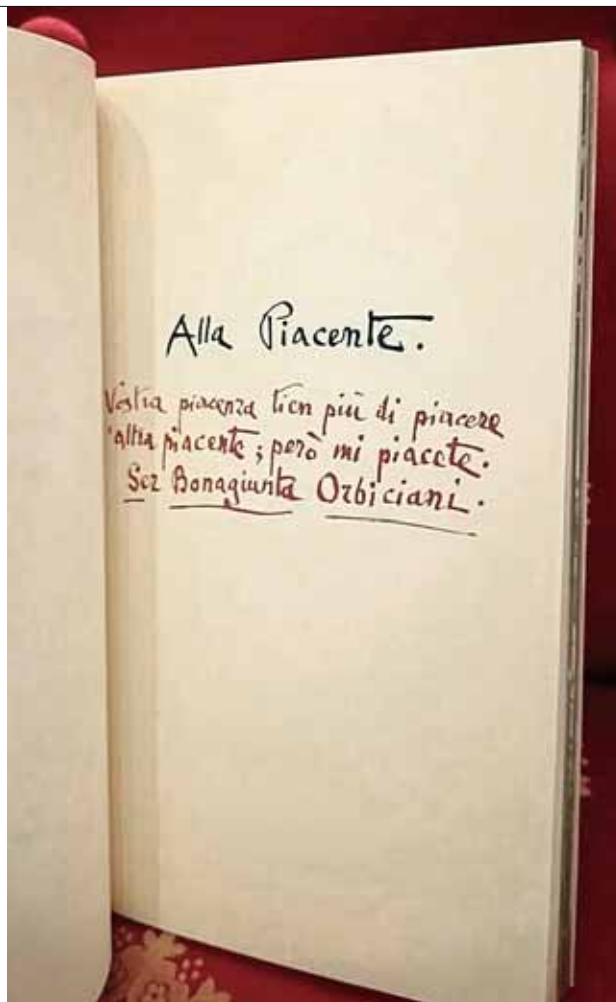 Alla Piacente.
Vostra piacenza tien più di piacere
altra piacente; però mi piacete.
Ser Bonagiunta Orbiciani.